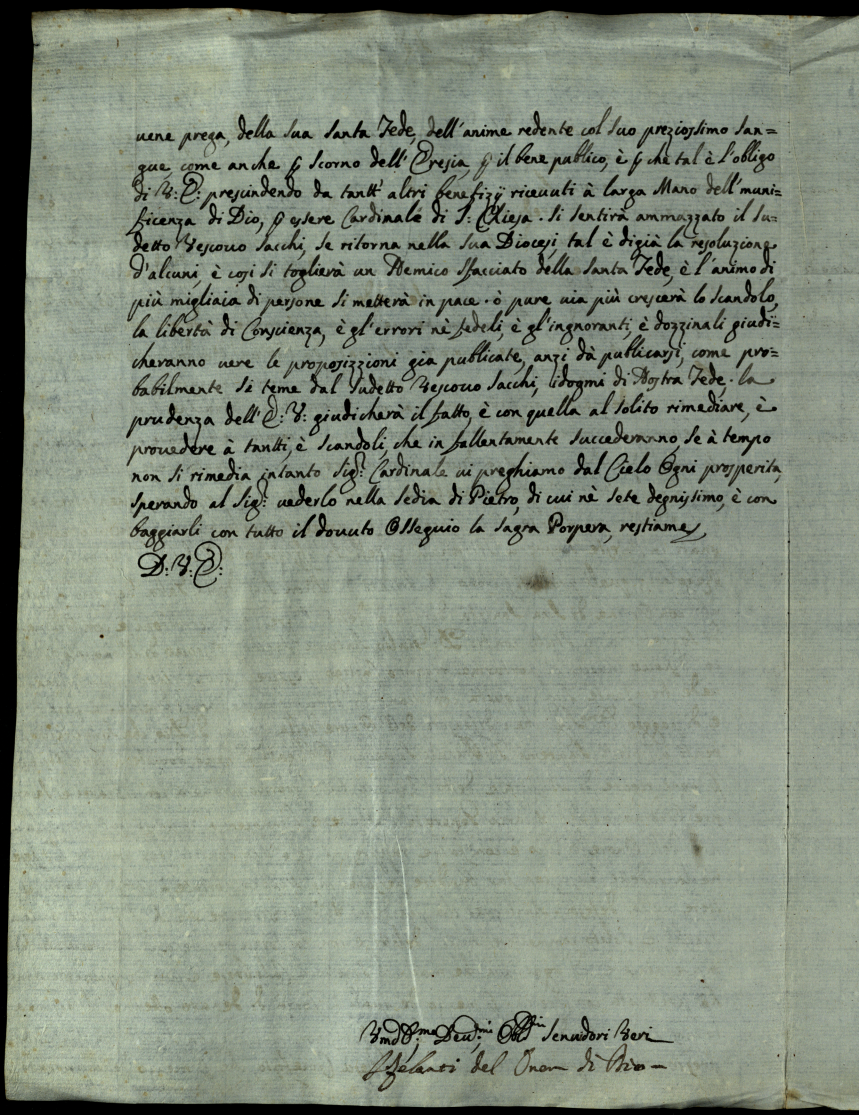 uene prega, della sua santa Fede, dell'anime redente col suo preziosissimo san=
gue, come anche ꝑ scorno dell'Eresia, ꝑ il bene publico, è ꝑ che tal è l'obligo
di V: E: prescindendo da tantt' altri benefizÿ riceuuti à larga Mano dell'muni=
ficenza di Dio, ꝑ essere Cardinale di S: Chiesa. Si sentirà ammazzato il su=
detto Vescouo Sacchi, se ritorna nella sua Diocesi, tal è digià la resoluzione
d'alcuni è così si toglierà un Nemico sfacciato della Santa Fede, è l'animo di
più migliaia di persone si metterà in pace. ò pure uia più crescerà lo scandolo,
la libertà di Conscienza, è gl'errori nè fedeli, è gl'ingnoranti, è dozzinali giudi=
cheranno uere le proposizzioni gia publicate, anzi dà publicarsi, come pro=
babilmente sè teme dal sudetto Vescouo Sacchi, lidogmi di Nostra Fede. la
prudenza dell'E: V: giudicherà il fatto, è con quella al solito rimediare, è
prouedere à tantti, è scandoli, che in fallentamente succederanno, se à tempo
non si rimedia intanto Sig.r Cardinale ui preghiamo dal Cielo Ogni prosperita,
sperando al Sig.r uederlo nella sedia di Pietro, di cui nè sete degnissimo, è con
baggiarli con tutto il douuto Ossequio la sagra Porpera, restiame
D: V: E:
Deuo.mi Obb.mi Seruidori Veri
Zelanti del Onor di Dio